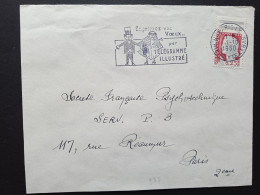 Exprimez vos
Vœux...
par
TÉLÉGRAMME
ILLUSTRÉ
Société Française Psychotechnique
SERV. P 3
117, rue Réaumur
Paris
2ème